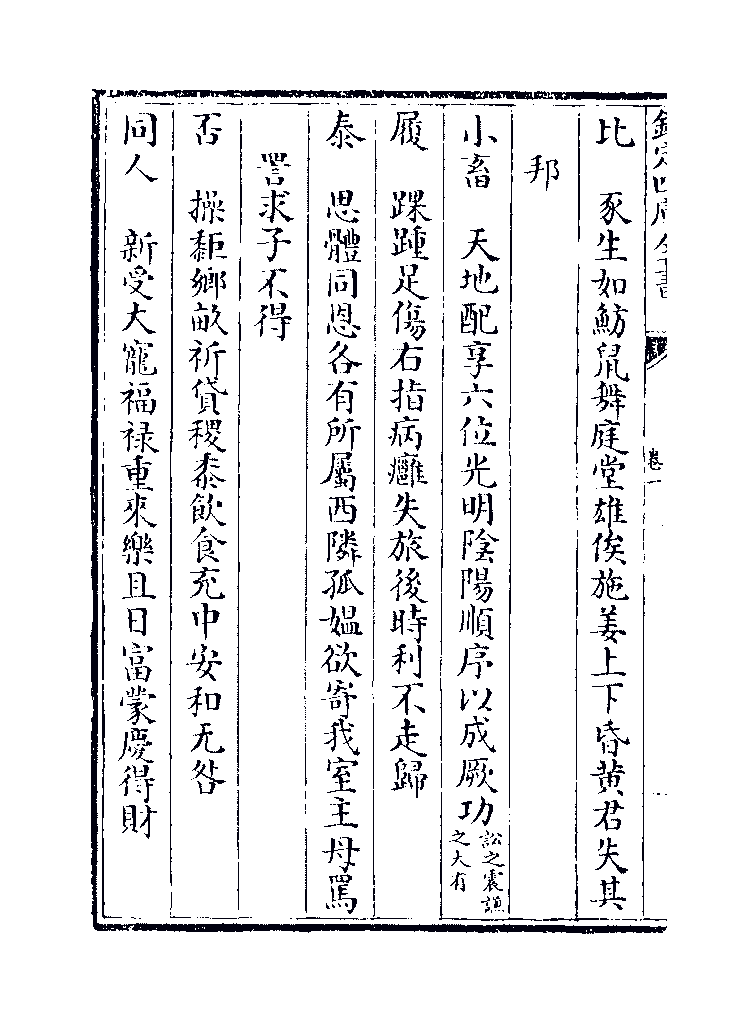 欽定四庫全書
卷一
比　豕生如魴鼠舞庭堂雄侯施姜上下昏黄君失其
邦
小畜　天地配享六位光明陰陽順序以成厥功訟之震謙之大有
履　踝踵足傷右指病癰失旅後時利不走歸
泰　思體同恩各有所屬西隣孤媪欲寄我室主母罵
詈求子不得
否　操耟鄉畝祈貸稷黍飲食充中安和无咎
同人　新受大寵福禄重來樂且日富蒙慶得財